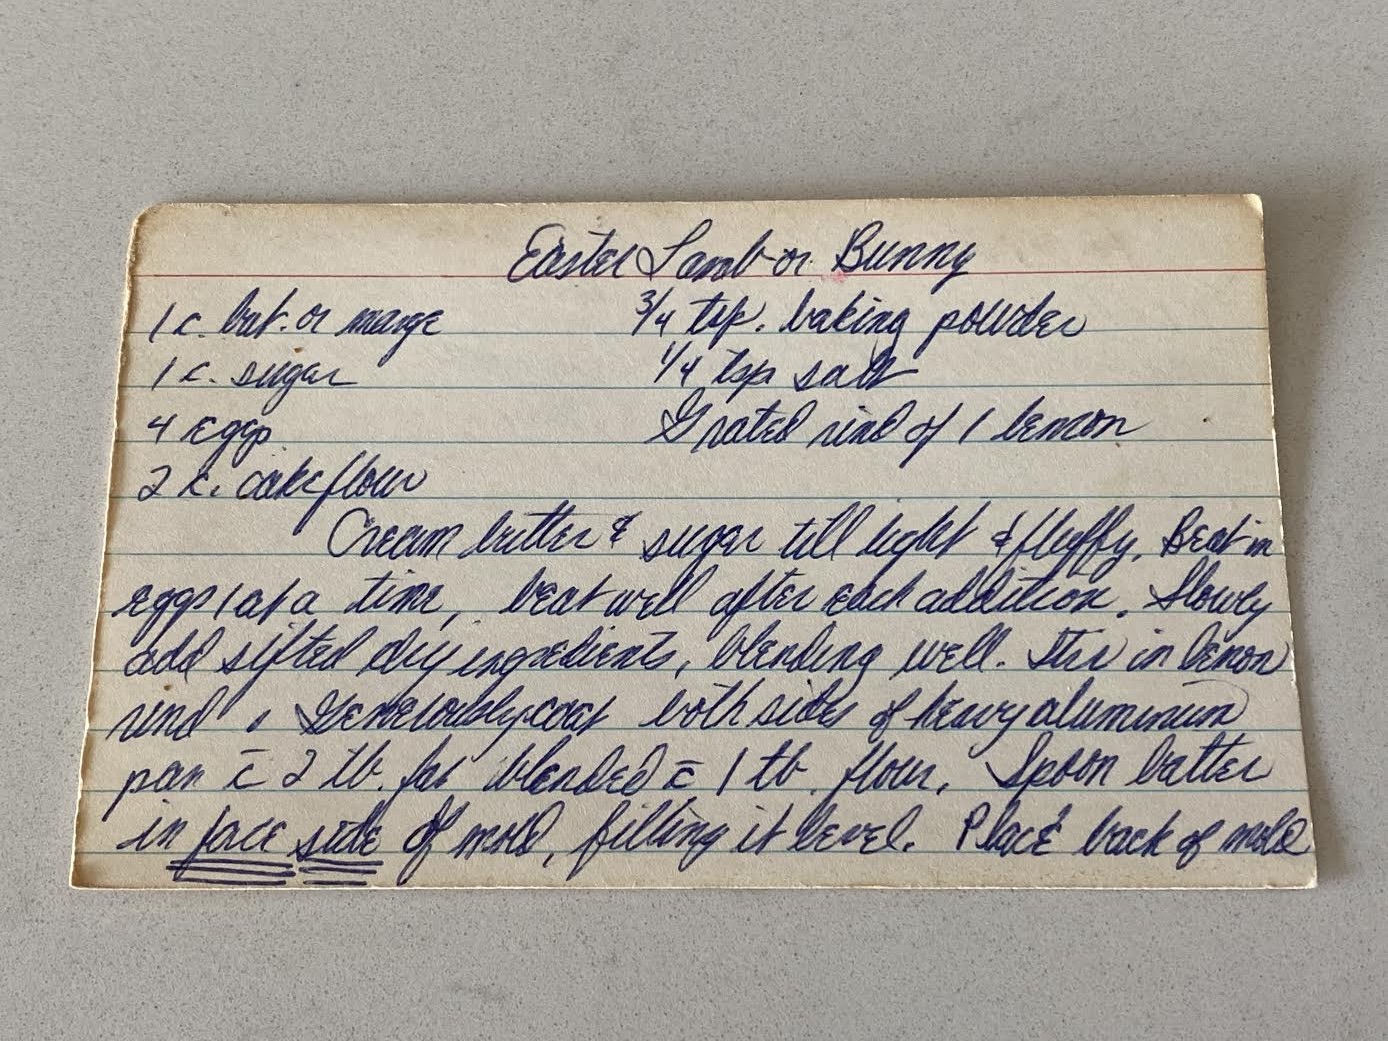 Easter Lamb or Bunny
1 c. but. or marge
3/4 tsp. baking powder
1 c. sugar
1/4 tsp salt
4 eggs
Grated rind of 1 lemon
2 c. cake flour
Cream butter & sugar till light & fluffy. Beat in
eggs 1 at a time, beat well after each addition. Slowly
add sifted dry ingredients, blending well. Stir in lemon
rind. Generously coat both sides of heavy aluminum
pan c̄ 2 tb. fat blended c̄ 1 tb. flour. Spoon batter
in face side of mold, filling it level. Place back of mold